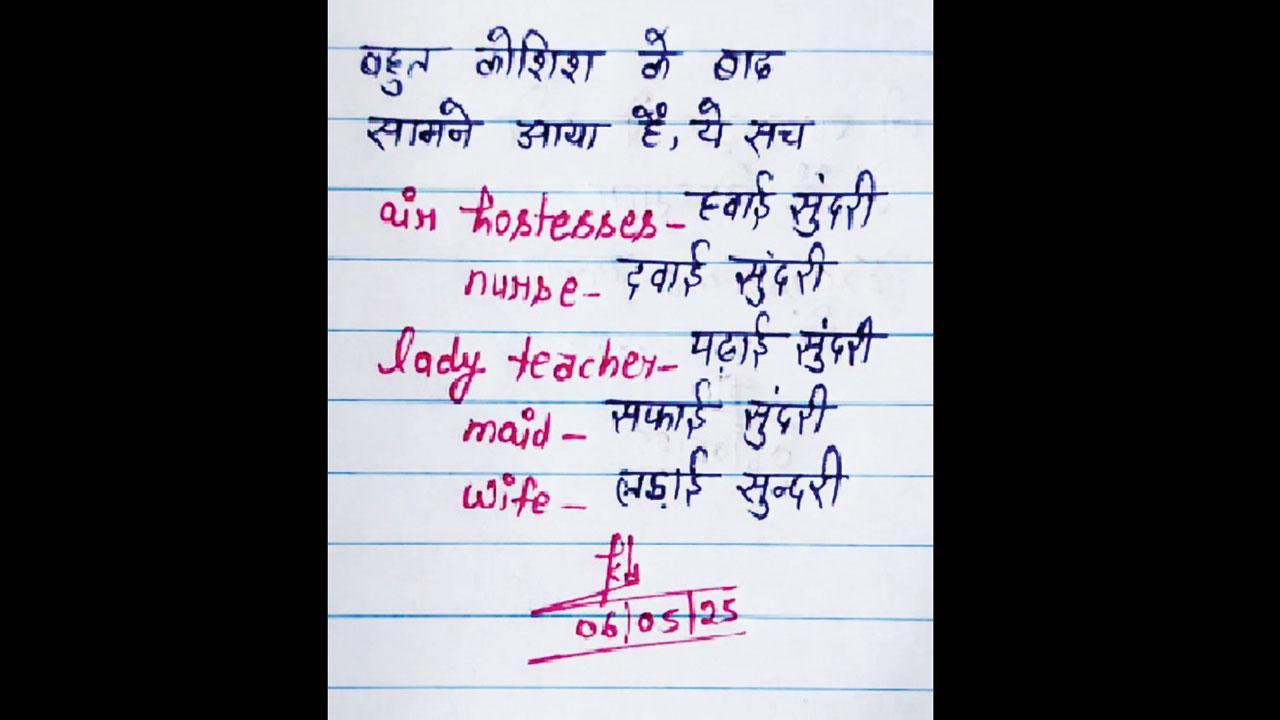 बहुत कोशिश के बाद
सामने आया हैं, ये सच
air hostesses- हवाई सुंदरी
nurse- दवाई सुंदरी
lady teacher- पढ़ाई सुंदरी
maid - सफाई सुंदरी
wife - लड़ाई सुन्दरी
06/05/25